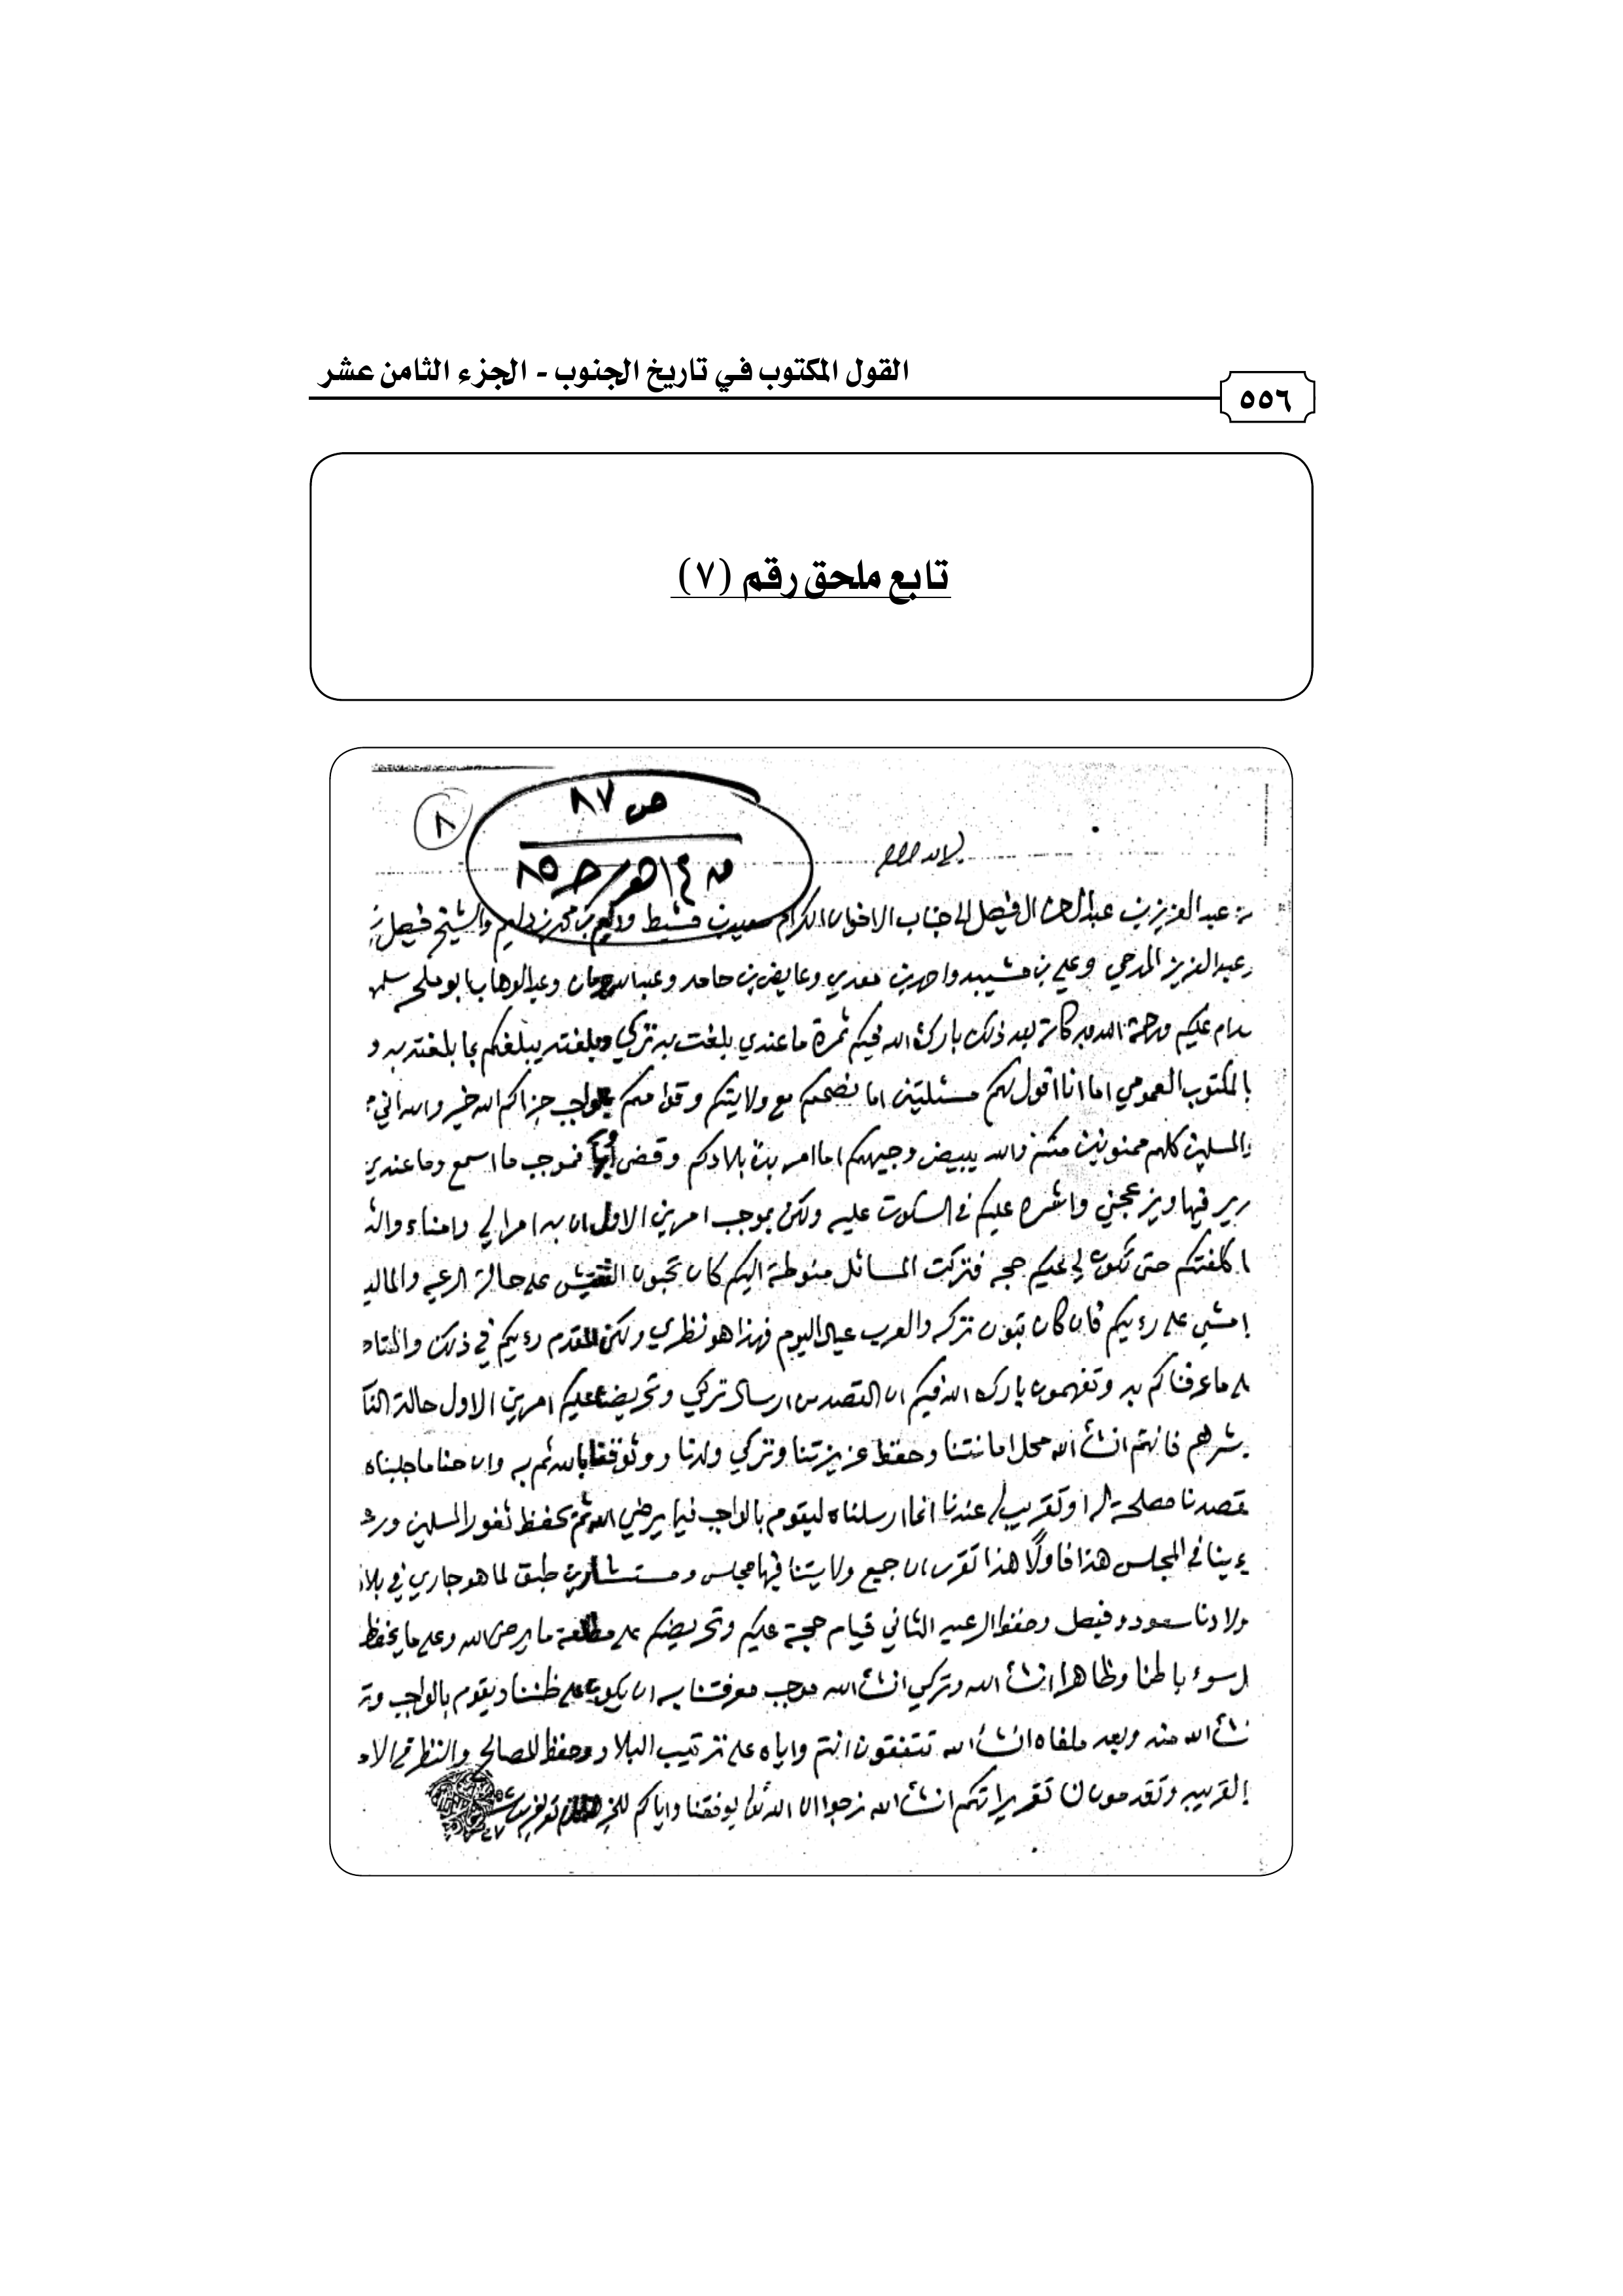 القول المكتوب في تاريخ الجنوب - الجزء الثامن عشر
٥٥٦
تابع ملحق رقم (٧)
ص ٨٧
٨
من عبد العزيز بن عبد الرحمن ال فيصل الى جناب الاخوان الكرام سعيد بن مشيط و محمد بن دليم والشيخ فيصل
وعبد العزيز المدحي وعلي بن مشيبه واحمد بن معدي وعايض بن حامد وعبد الوهاب ابو ملحه سلمه
سلام عليكم ورحمة الله وبركاته بعد ذلك بارك الله فيكم ثمرة ما عندي بلغت به تركي وبلغته يبلغكم بما بلغته به و
بالمكتوب العمومي اما انا اقول لكم مسئلتين اما نصحكم مع ولايتكم وقيامكم بالواجب جزاكم الله خير والله اني
والمسلمين كلهم ممنونين منكم والله يبيض وجيهكم اما امر بدة بلادكم وقض فموجب ما اسمع وما عندي
فيها ويزعجني واشره عليكم في السكوت عليه ولكن بموجب امرين الاول ان به امرا لي وامناء والثا
كلفتكم حتى تكون لي عليكم حجه فتركت المسائل منوطة اليكم كان تحبون التفتيش على حالة الرعيه والماليه
امشي على رءيكم فان كان تبون تركه والعرب عيال اليوم فهذا هو نظري ولكن المقدم رءيكم في ذلك والمتاد
ما عرفناكم به وتفهمون بارك الله فيكم ان القصد من ارسال تركي وتحريضنا عليكم امرين الاول حالة النا
شرهم فانتم انشاء الله محل امانتنا وحفظ عزيزتنا وتركي ولدنا ووثوقنا بالله ثم به وان حنا ما جلبناه
قصدنا مصلحة له او تقريب له عندنا انما ارسلناه ليقوم بالواجب فيما يرضي الله ثم بحفظ ثغور المسلمين
في المجلس هذا فاولا هذا تقرر ان جميع ولايتنا فيها مجلس ومستشارين طبق لما هو جاري في بلاد
اولادنا سعود وفيصل وحفظ الرعيه الثاني قيام حجة عليكم وتحريضكم على ما يرضى الله وعلى ما يحفظ
السوء باطنا وظاهرا انشاء الله وتركي انشاء الله موجب معرفتنا به ان يكون على ظننا ويقوم بالواجب
انشاء الله منه وبعد ملفاه انشاء الله تتفقون انتم واياه على ترتيب البلاد وحفظ المصالح والنظر في
القريبه وتقدمون لنا تقريراتكم انشاء الله نرجوا ان الله يوفقنا واياكم للخير